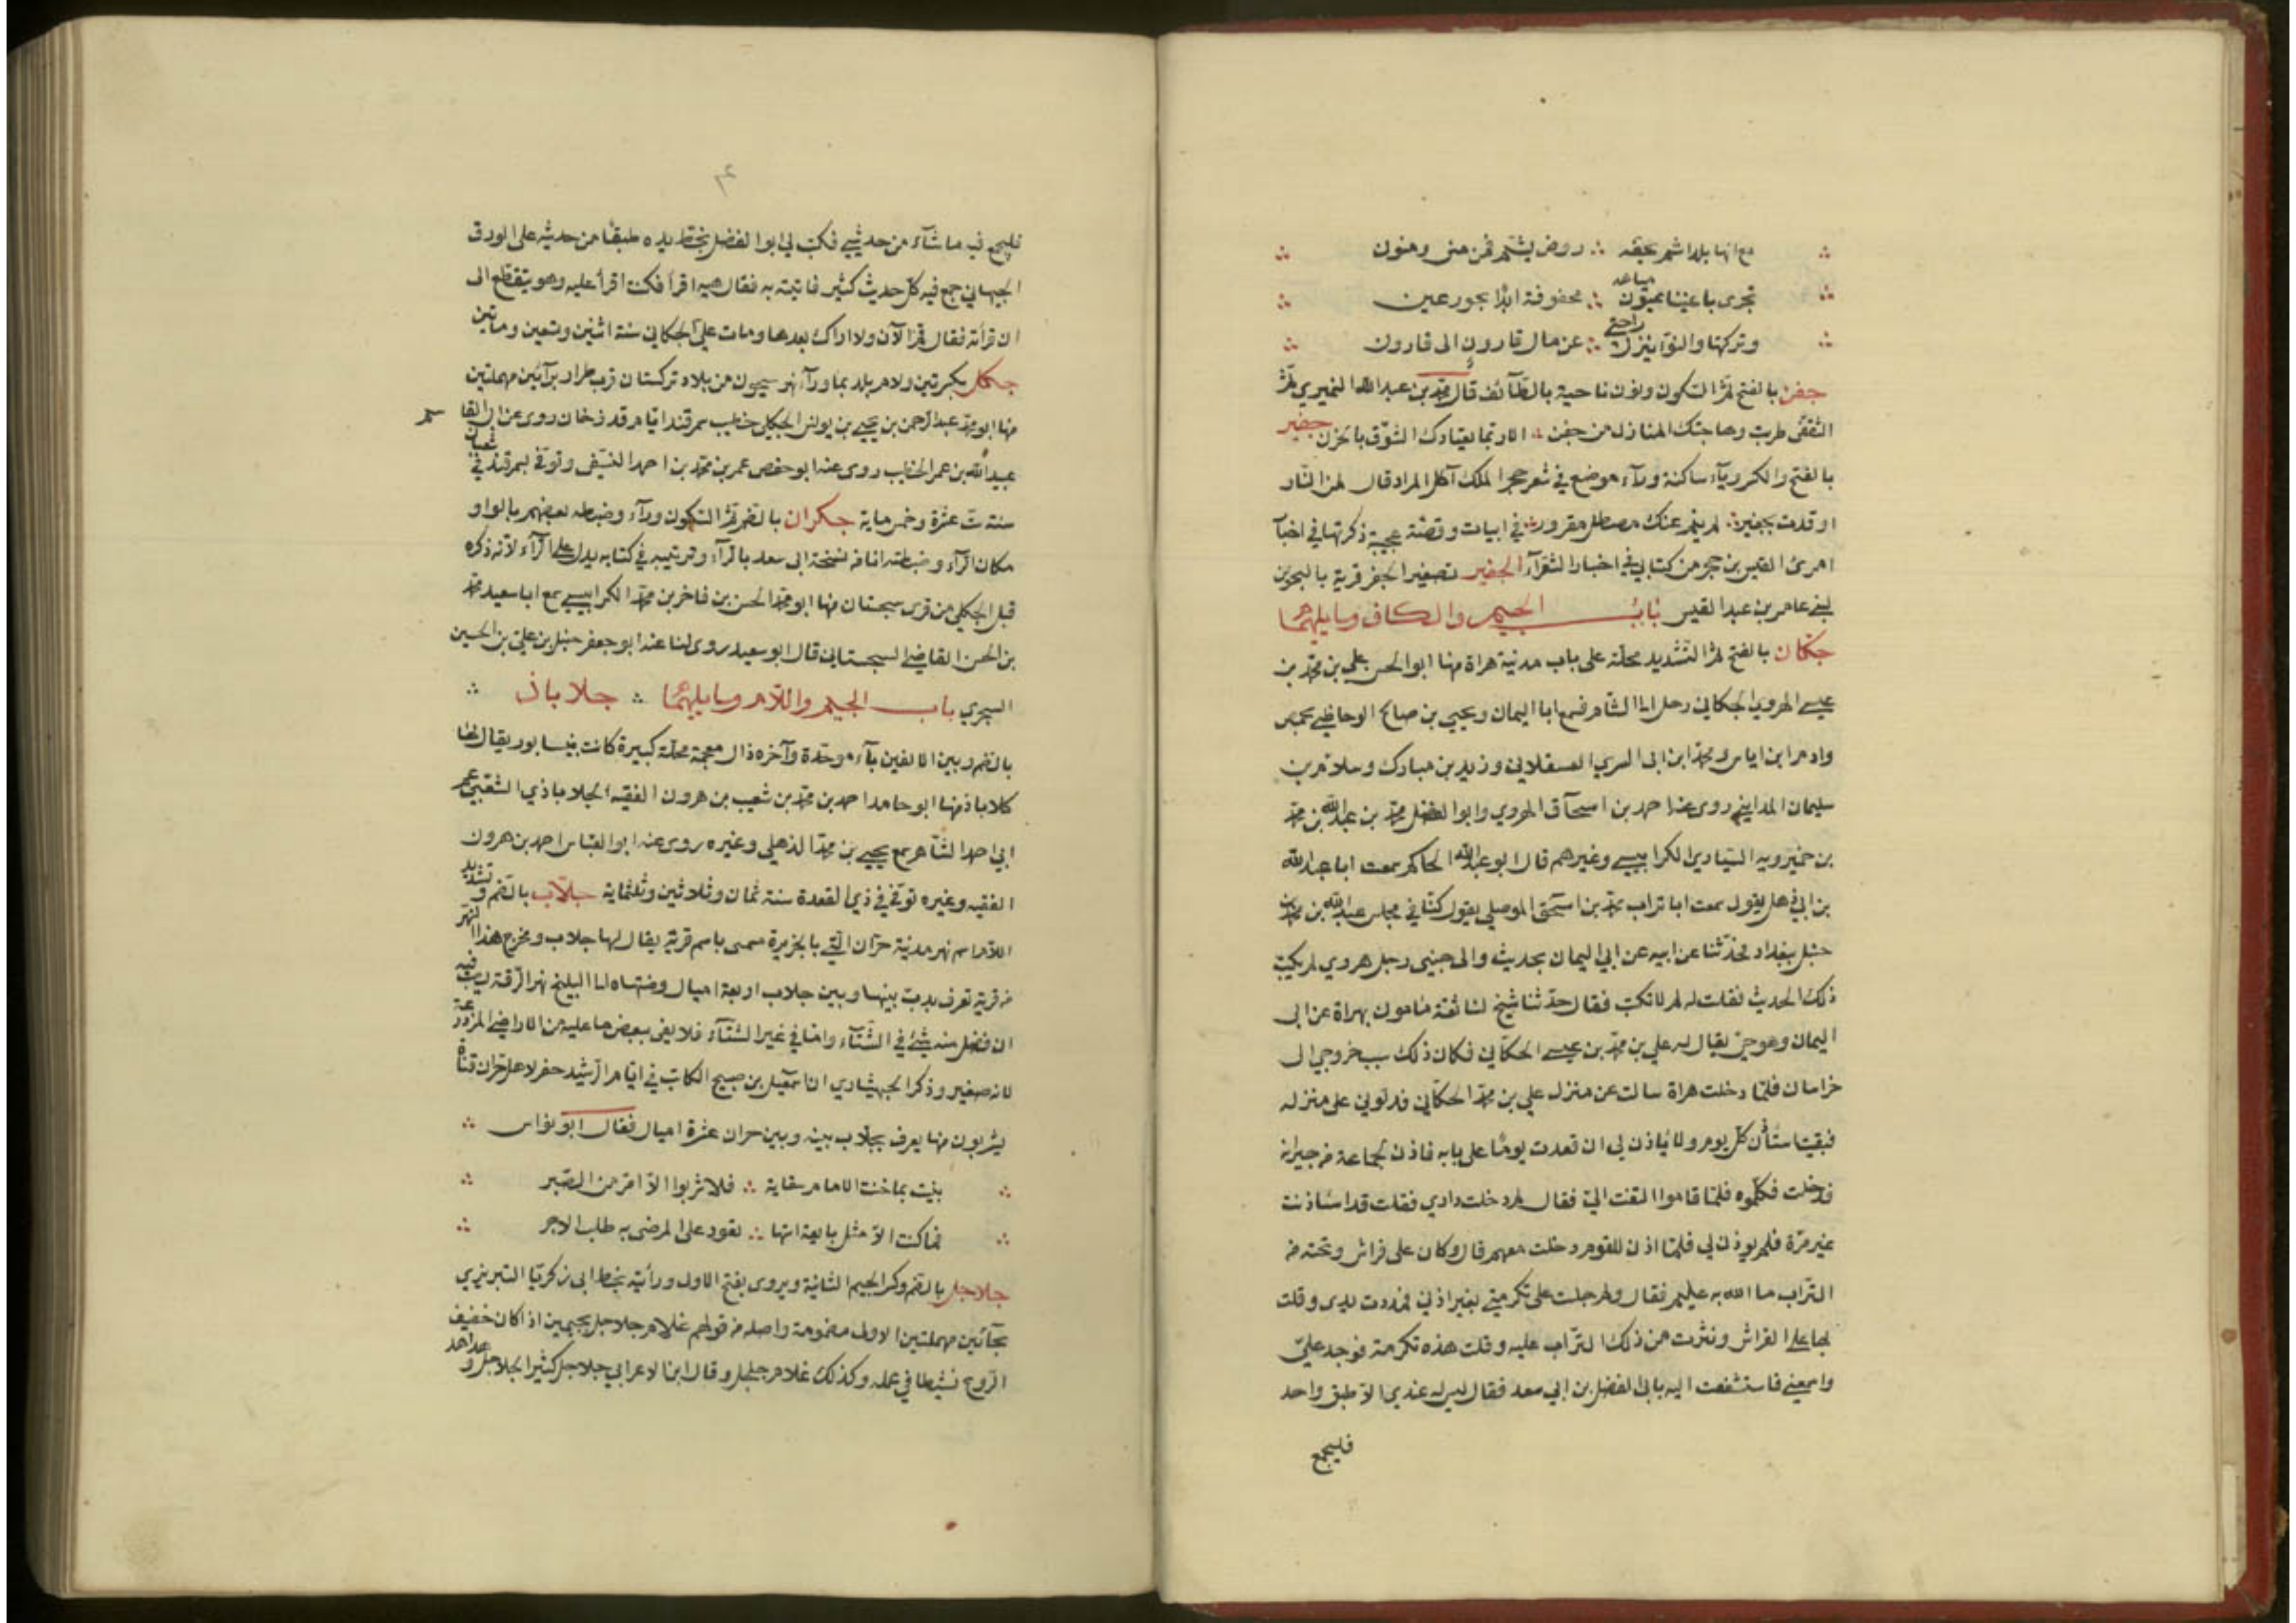 مع انها بلد اشم بحقه ∴ روض يشم فمن منى ومنون
تجرى باعيننا عيون مباعد ∴ محفوفة ابدا بحور عين
وتركتها والنوآ ينزل راحتي ∴ عن مال قارون الى قارون
جفن بالفتح ثمّ السكون ونون ناحية بالطّآئف قال محمّد بن عبد الله النميري ثمّ
الثقفى طربت وهاجتك المنازل من جفن ∴ الا ربّما يعتادك الشوق بالحزن جفير
بالفتح والكسر ويآء ساكنة ورآء موضع في شعر حجر الملك آكل المرار قال لمن النّار
اوقدت بجفير ∴ لم ينم عنك مصطل مقرور ∴ في ابيات وقصّة عجيبة ذكرتها في اخبآ
امرئ القيس بن حجر من كتابي في اخبار الشعرآء الجفير تصغير الجفر قرية بالبحرين
لبني عامر بن عبد القيس باب الجيم والكاف وما يليهما
جكّان بالفتح ثمّ التّشديد محلّة على باب مدينة هراة منها ابو الحسن علي بن محمّد بن
عيسى الهروي الجكاني رحل الى الشام فسمع ابا اليمان ويحيى بن صالح الوحاظي بحمص
وادم ابن اياس ومحمّد ابن ابى السري العسقلاني وزيد بن مبارك وسلام بن
سليمان المدايني روى عنه احمد بن اسحآق الهروي وابو الفضل محمّد بن عبد الله بن محمّد
بن خميرويه السّيّاري الكرابيسي وغيرهم قال ابو عبد الله الحاكم سمعت ابا عبد الله
بن ابي ذهل يقول سمعت ابا تراب محمّد بن اسحق الموصلي يقول كنّا في مجلس عبد الله بن محمّد بن
حنبل ببغداد فحدّثنا عن ابيه عن ابي اليمان بحديث والى جنبى رجل هروي لم يكتب
ذلك الحديث فقلت له لم لا تكتب فقال حدّثنا شيخ لنا ثقة مأمون بهراة عن ابى
اليمان وهو حيّ يقال له علي بن محمّد بن عيسى الحكّاني فكان ذلك سبب خروجي الى
خراسان فلمّا دخلت هراة سالت عن منزل علي بن محمّد الحكّاني فدلوني على منزله
فبقيت استأذن كلّ يوم ولا يأذن لي الى ان قعدت يومًا على بابه فاذن لجماعة من جيرانه
فدخلت فكلّموه فلمّا قاموا التفت اليّ فقال لم دخلت داري فقلت قد استاذنت
غير مرّة فلم يوذن لي فلمّا اذن للقوم دخلت معهم قال وكان على فراش وتحته من
التّراب ما الله به عليم فقال ولم جلست على تكرمتي بغير اذني فمددت يدى وقلت
بها على الفراش ونثرت من ذلك التراب عليه وقلت هذه تكرمة فوجد عليّ
واسمعني فاستشفعت اليه بابي الفضل بن ابي سعد فقال ليس له عندي الاّ طبق واحد
فليجمع
فليجمع فيه ما شآء من حديثي فكتب لي ابو الفضل بخط يده طبقًا من حديثه على الورق
الجيهاني جمع فيه كلّ حديث كثير فاتيته به فقال هيه اقرأ فكنت اقرأ عليه وهو يتقطّع الى
ان قرأته فقال قم الآن ولا اراك بعدها ومات عليّ الجكاني سنة اثنين وتسعين ومائتين
جكل بكسرتين ولام بلد بما ورآء نهر سيحون من بلاد تركستان قرب طراز برآئين مهملتين
منها ابو محمّد عبد الرّحمن بن يحيى بن يونس الجكلي خطيب سمرقند ايّام قدرخان روى عن ابى القا سم
عبيد الله بن عمر الخطيب روى عنه ابو حفص عمر بن محمّد بن احمد النسفي وتوفّي بسمرقند في شعبان
سنة ستّ عشرة وخمس ماية جكران بالضم ثمّ السّكون ورآء وضبطه بعضهم بالواو
مكان الرّآء وضبطته انا من نسخة ابى سعد بالرّآء وترتيبه في كتابه يدل على الرّآء لانّه ذكره
قبل الجكلي من قرى سجستان منها ابو محمّد الحسن بن فاخر بن محمّد الكرابيسي سمع ابا سعيد محمّد
بن الحسن القاضي السجستاني قال ابو سعيد روى لنا عنه ابو جعفر حنبل بن علي بن الحسين
السجزي باب الجيم واللاّم وما يليهما ∴ جلاباذ ∴
بالضم وبين الالفين بآء موحّدة وآخره ذال معجمة محلّة كبيرة كانت بنيسابور يقال لها
كلاباذ منها ابو حامد احمد بن محمّد بن شعيب بن هرون الفقيه الجلاباذي الشعيبي عمّ
ابي احمد الشّاهد سمع يحيى بن محمّد الذهلي وغيره روى عنه ابو العبّاس احمد بن هرون
الفقيه وغيره توفّي في ذي القعدة سنة ثمان وثلاثين وثلثماية جلاّب بالضم وتشديد
اللاّم اسم نهر مدينة حرّان الّتي بالجزيرة مسمى باسم قرية يقال لها جلاب ومخرج هذا النهر
من قرية تعرف بدب بينها وبين جلاب اربعة اميال ومنتهاه الى البليخ نهر الرّقة يصبّ فيه
ان فضل منه شيئ في الشّتآء وامّا في غير الشتآء فلا يفى ببعض ما عليه من الاراضي المزدرعة
لانه صغير وذكر الجهشياري ان اسمعيل بن صبيح الكاتب في ايّام الرّشيد حفر لاهل حرّان قناة
يشربون منها يعرف بجلاّب بينه وبين حران عشرة اميال فقال ابو نواس ∴
بنيت بما خنت الامام سقاية ∴ فلا شربوا الاّ امرّ من الصّبر
فما كنت الاّ مثل بايعة استها ∴ تعود على المرضى به طلب الاجر
جلاجل بالضم وكسر الجيم الثانية ويروى بفتح الاول ورأيته بخط ابى زكريّا التبريزي
بحآئين مهملتين الاولى مضمومة واصله من قولهم غلام جلاجل بجيمين اذا كان خفيف
الروح نشيطا في عمله وكذلك غلام جلجل وقال ابن الاعرابي جلاجل كثير الجلاجل و